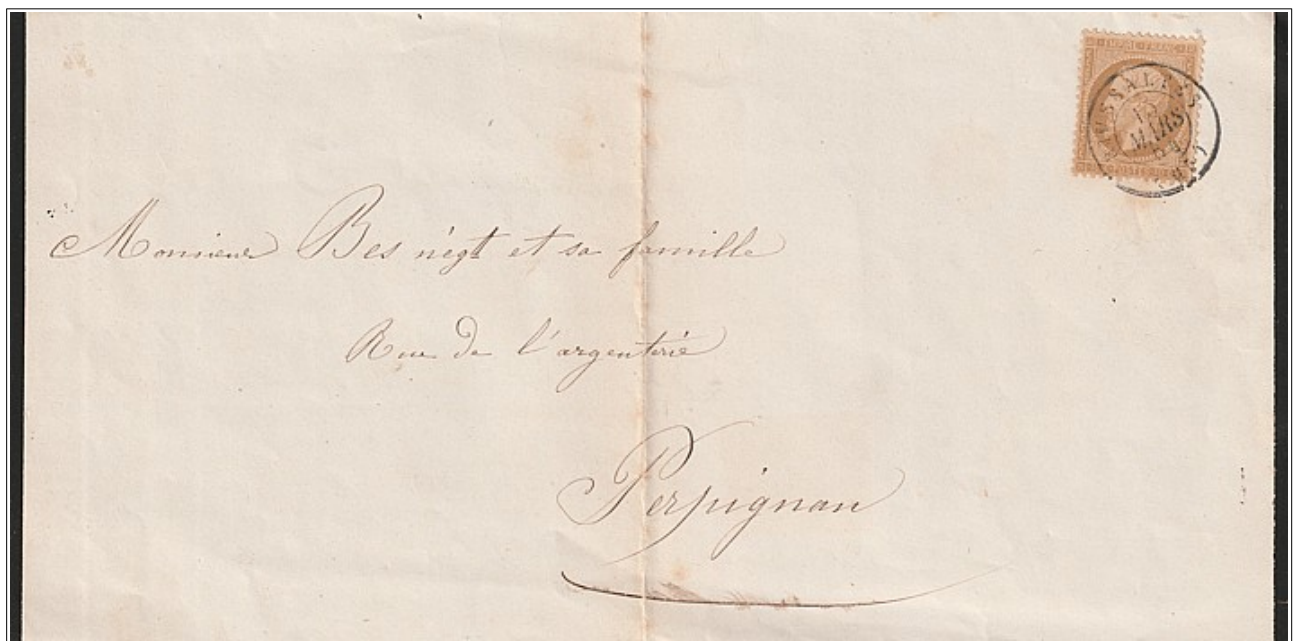 EMPIRE FRANC
15
MARS
64
Monsieur Bes négt et sa famille
Rue de l'argenterie
Perpignan